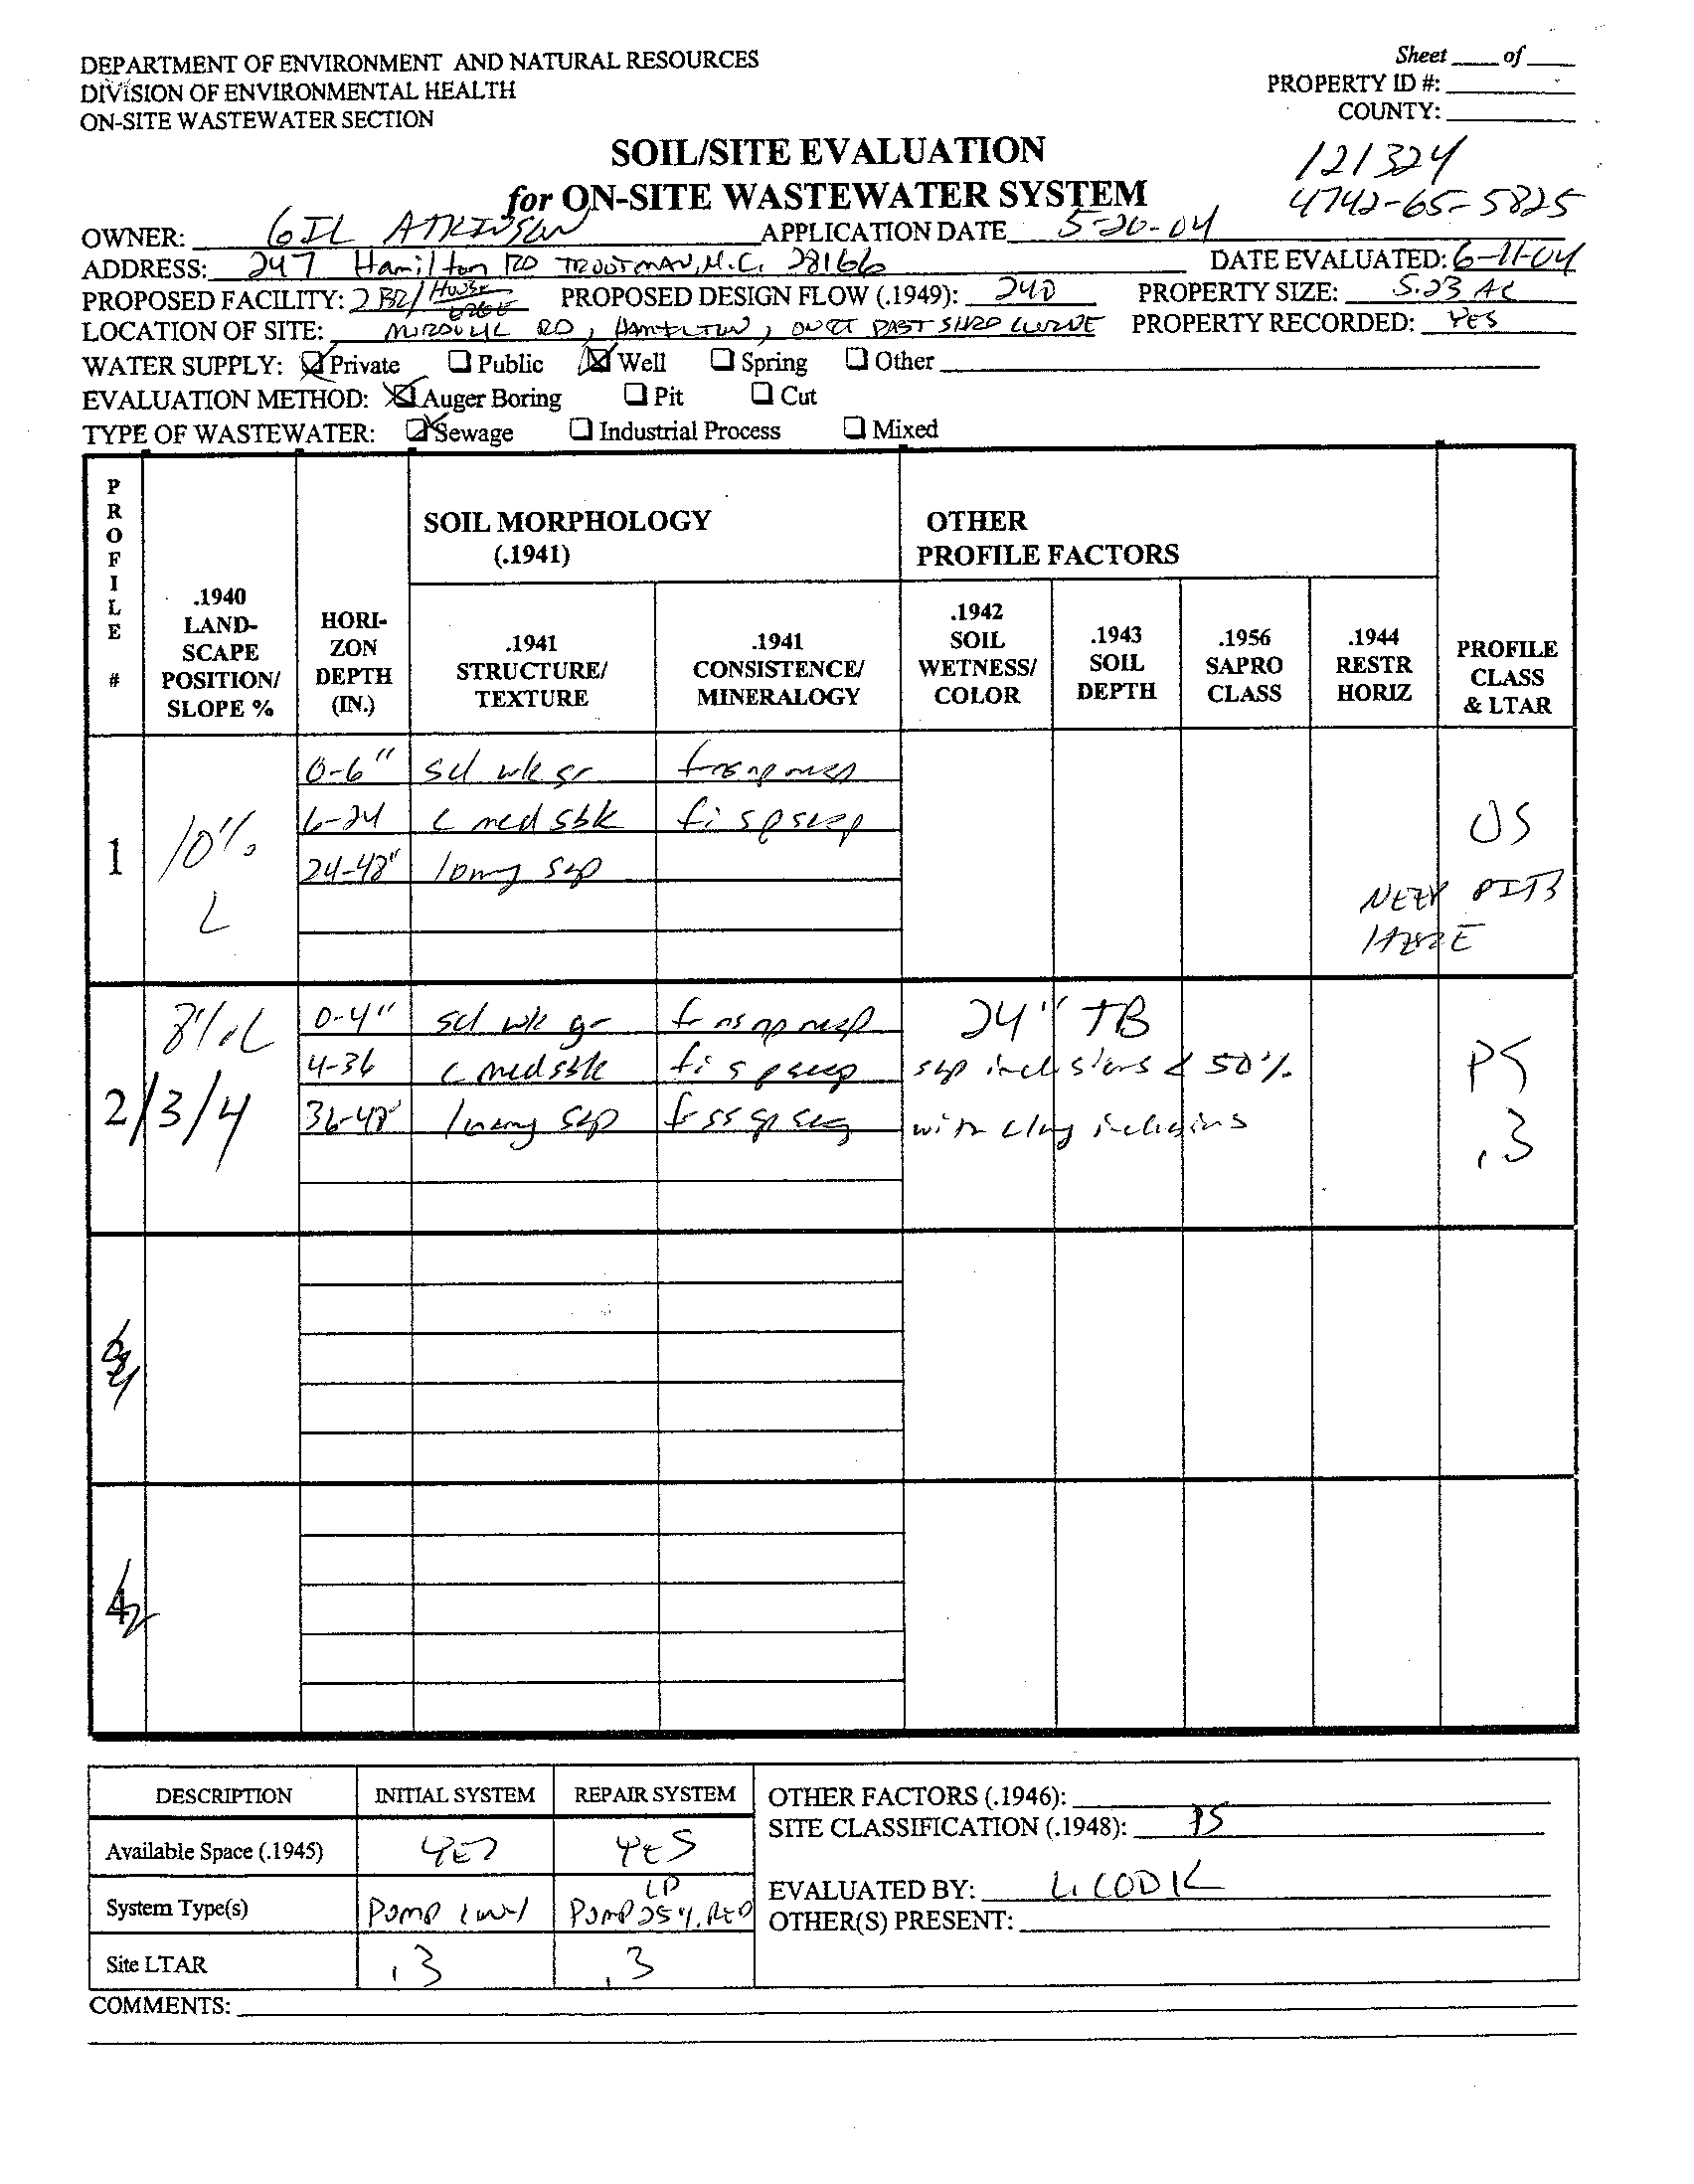 Sheet ____ of ____
DEPARTMENT OF ENVIRONMENT AND NATURAL RESOURCES
PROPERTY ID #:
DIVISION OF ENVIRONMENTAL HEALTH
COUNTY:
ON-SITE WASTEWATER SECTION
SOIL/SITE EVALUATION
121324
for ON-SITE WASTEWATER SYSTEM
4742-65-5825
OWNER: GIL ATKINSON APPLICATION DATE 5-20-04
ADDRESS: 247 Hamilton RD TROUTMAN, N.C. 28166 DATE EVALUATED: 6-11-04
PROPOSED FACILITY: 2 BR/ House PROPOSED DESIGN FLOW (.1949): 240 PROPERTY SIZE: 5.23 AC
LOCATION OF SITE: RD, HAMILTON, PAST SHARP CURVE PROPERTY RECORDED: YES
WATER SUPPLY: Private Public Well Spring Other
EVALUATION METHOD: Auger Boring Pit Cut
TYPE OF WASTEWATER: Sewage Industrial Process Mixed
PROFILE #
.1940 LAND-SCAPE POSITION/ SLOPE %
HORI-ZON DEPTH (IN.)
SOIL MORPHOLOGY
(.1941)
.1941 STRUCTURE/ TEXTURE
.1941 CONSISTENCE/ MINERALOGY
OTHER
PROFILE FACTORS
.1942 SOIL WETNESS/ COLOR
.1943 SOIL DEPTH
.1956 SAPRO CLASS
.1944 RESTR HORIZ
PROFILE CLASS & LTAR
1
10%
L
0-6" scl wk gr fr ns np nexp
6-24 c med sbk fi sp sexp
24-48" lomy sap
US
NEED PITS
HERE
2/3/4
8% L
0-4" scl wk gr fr ns np nexp
4-36 c med sbk fi s p sexp
36-48" loamy sap fr ss sp seg
24" TB
sap inclusions < 50%
with clay inclusions
PS
.3
4
DESCRIPTION INITIAL SYSTEM REPAIR SYSTEM
Available Space (.1945) YES YES
System Type(s) PUMP conv LP PUMP 25% RED
Site LTAR .3 .3
OTHER FACTORS (.1946):
SITE CLASSIFICATION (.1948): PS
EVALUATED BY: L. CODIK
OTHER(S) PRESENT:
COMMENTS: